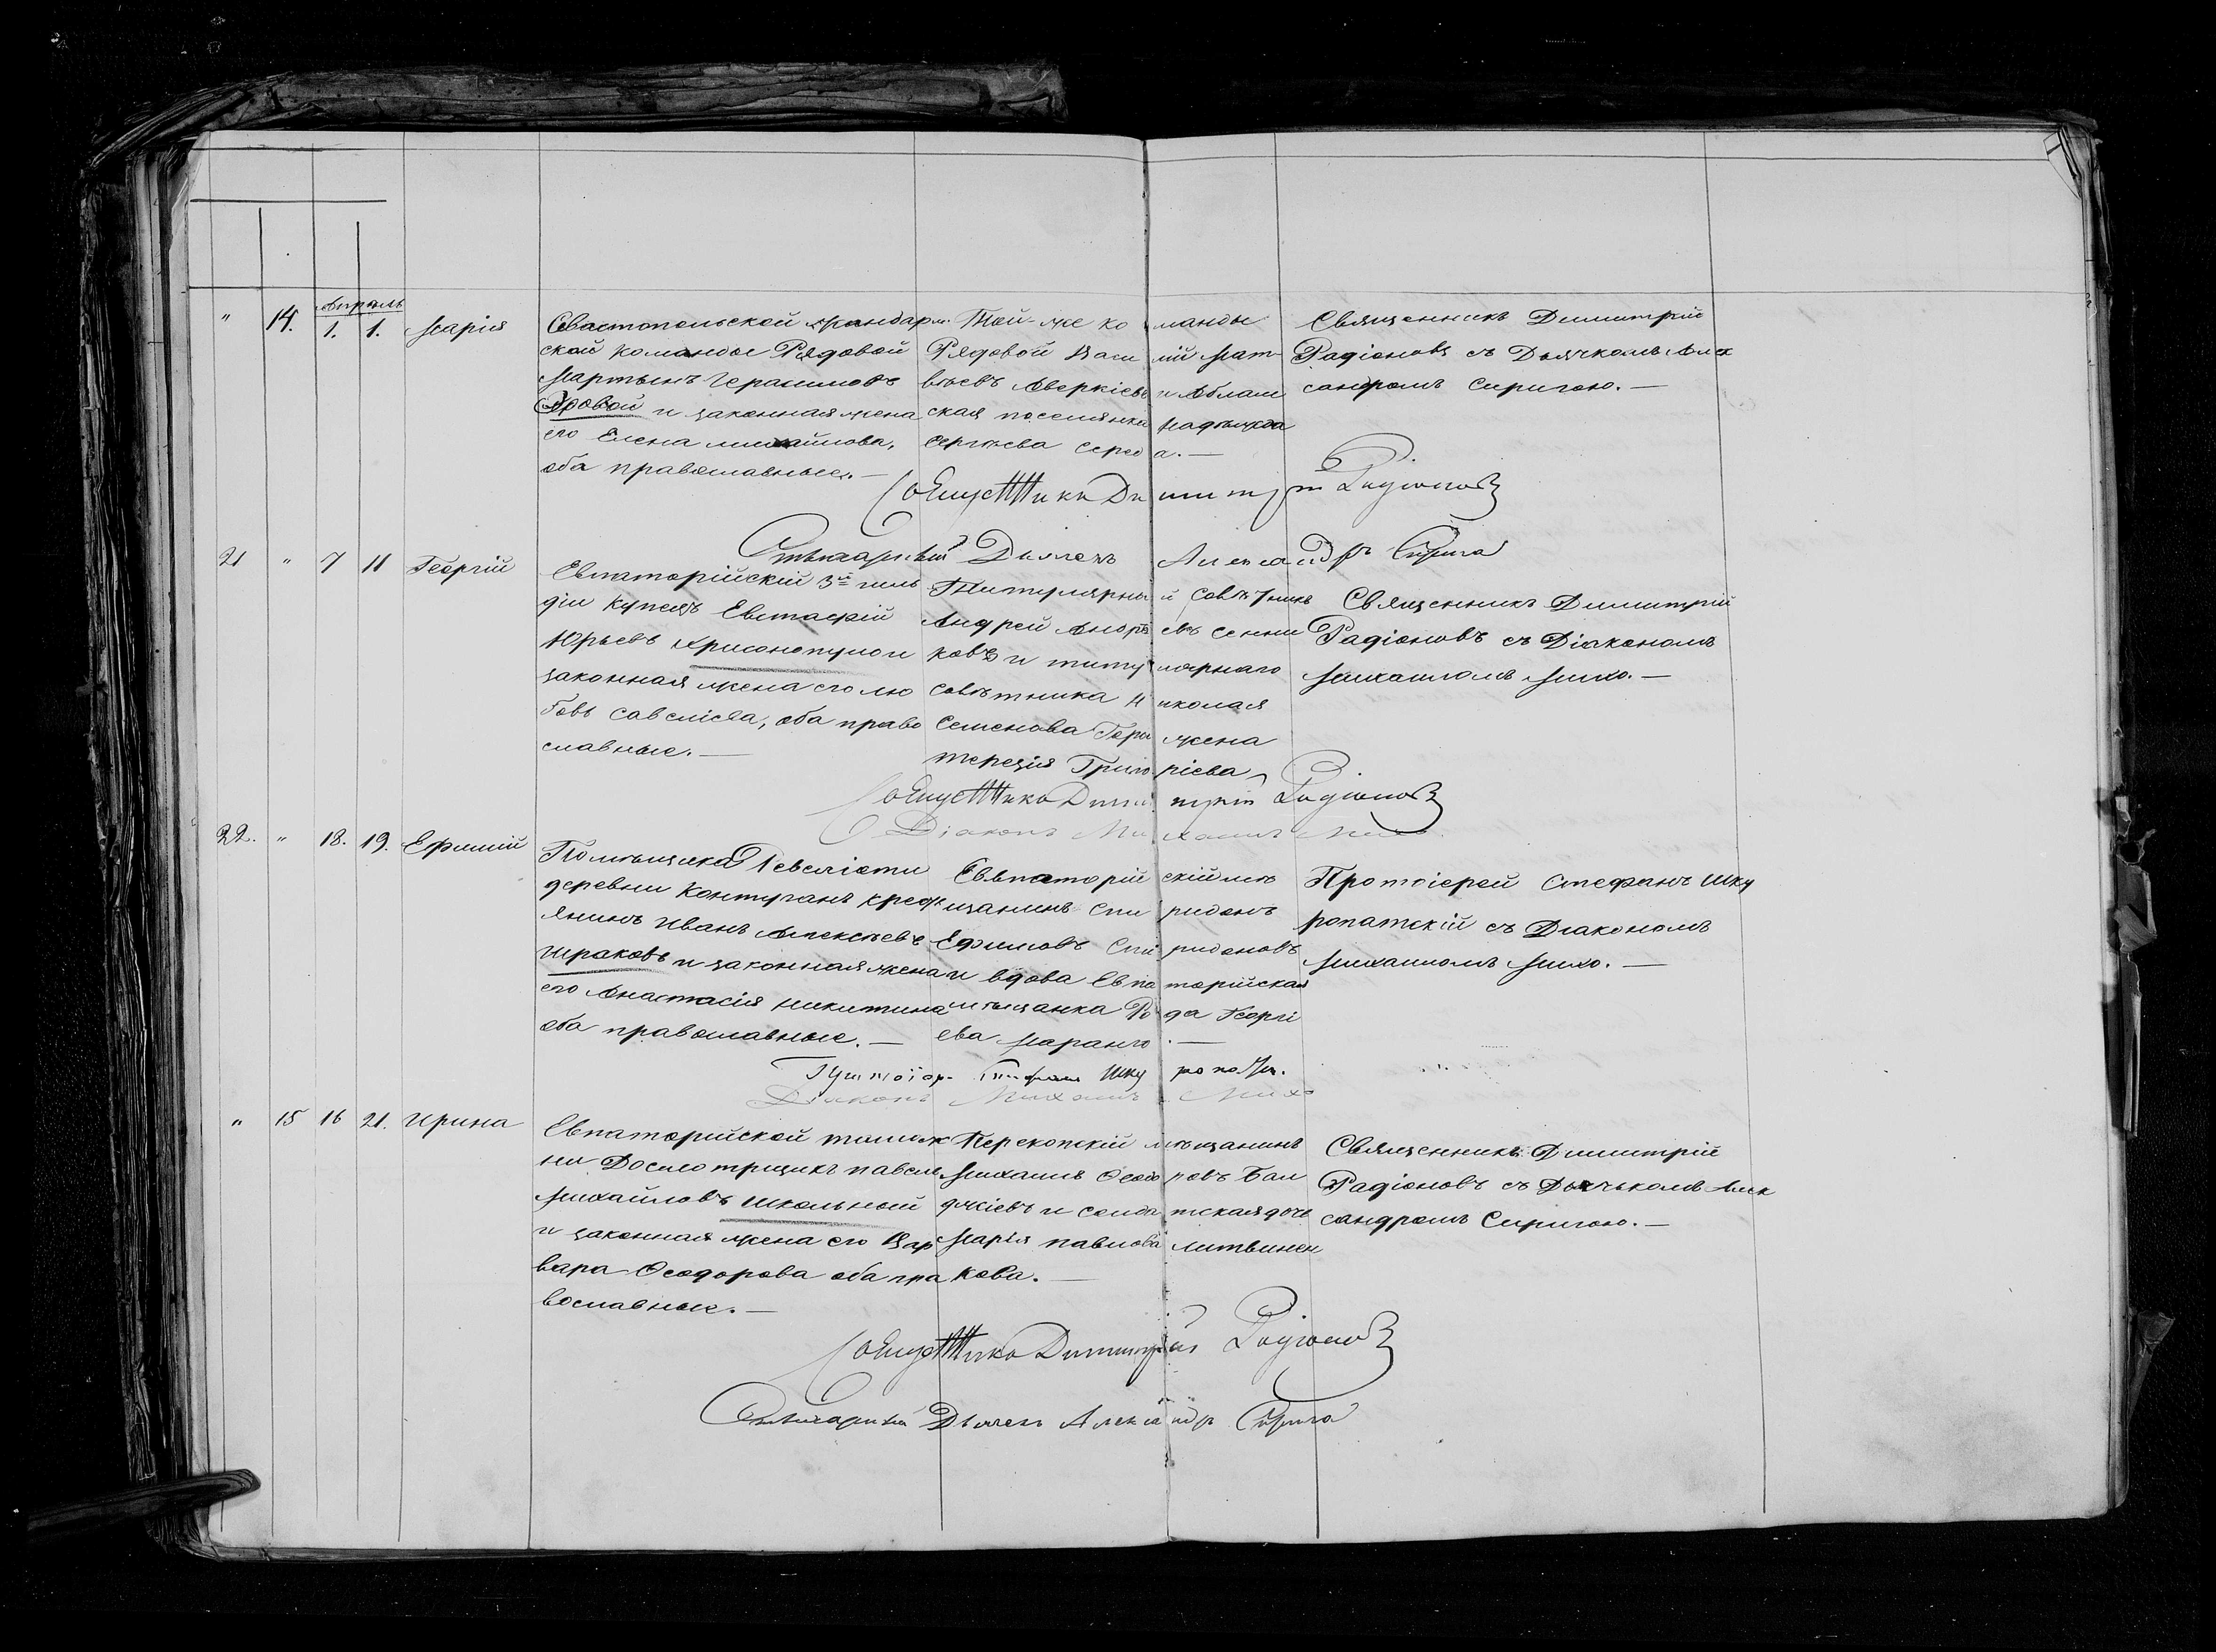 Апрель
" 14. 1. 1. Марія
Севастопольской жандарм
ской команды Рядовой
Мартынъ Герасимовъ
Яровой и законная жена
его Елена михайлова,
оба православные. —
Той-же команды
Рядовой Васи лій Мат
вѣевъ Аверкіевъ и Аблам
ская поселянка Надѣжда
Сергѣева Серед а. —
Священникъ Димитрій
Радіоновъ съ Дьячкомъ Алек
сандромъ Сиригою. —
Священникъ Димитрій Радіоновъ
Дьячекъ Александръ Сирига
21 " 7 11 Георгій
Евпаторійскій 3й гиль
діи купецъ Евстафій
Юрьевъ Хрисонопуло и
законная жена его Лю
бовь Савеліева, оба право
славные. —
Титулярный Совѣтникъ
Андрей Андрѣевъ Сенни
ковъ и титулярнаго
совѣтника Николая
Семенова жена
терезія Григоріева
Священникъ Димитрій
Радіоновъ съ Діякономъ
Михаиломъ Михо. —
Священникъ Димитрій Радіоновъ
Діаконъ Михаилъ Михо
22. " 18. 19. Ефимій
Помѣщика Ревеліоти
деревни Контуганъ крест
янинъ Иванъ Алексѣевъ
Шраковъ и законная жена
его Анастасія никитина
оба православные. —
Евьпаторійскій мѣ
щанинъ Спиридонъ
Ефимовъ Спиридоновъ
и вдова Евпаторійская
мѣщанка Ро да Георгі
ева Маранго. —
Протоіерей Стефанъ Шку
ропатскій съ Діакономъ
Михаиломъ Михо. —
Протоіер. Стефанъ Шкуропат.
Діаконъ Михаилъ Михо
" 15 16 21. Ирина
Евпаторийской тамож
ни Досмотрщикъ павелъ
Михайловъ Школьной
и законная жена его Вар
вара Ѳеодорова оба пра
вославные. —
Перекопскій мѣщанинъ
Михаилъ Ѳеодоровъ Бал
джіевъ и солдатская дочь
Марія павлова Литвинен
кова. —
Священникъ Димитрій
Радіоновъ съ Дьячькомъ Алек
сандромъ Сиригою. —
Священникъ Димитрій Радіоновъ
Дьячекъ Александръ Сирига